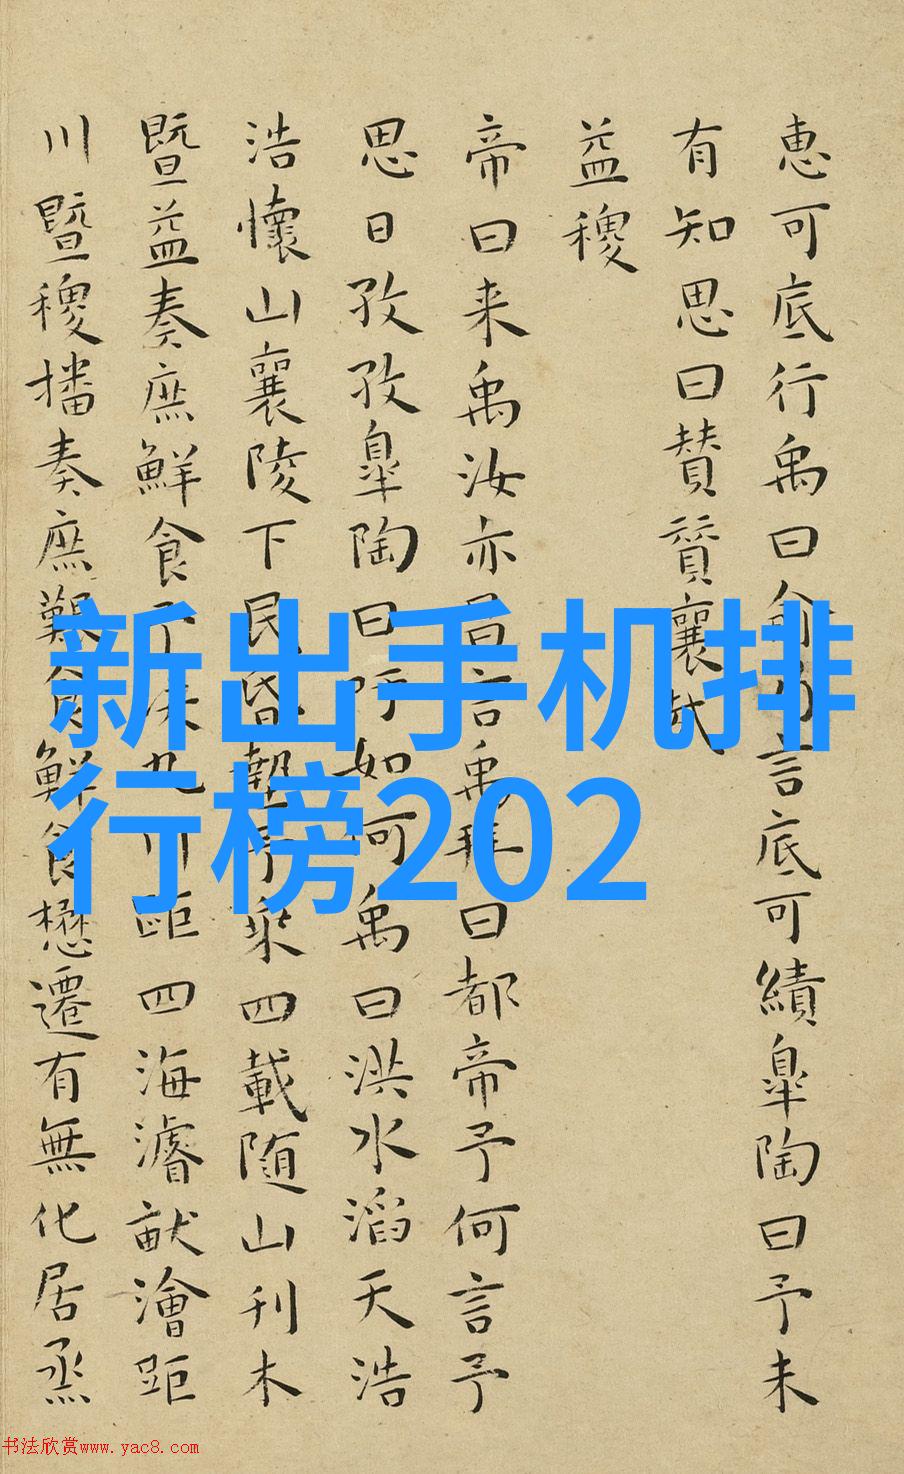 惠可底行禹曰俞乃言底可績皐陶曰予未
有知思曰賛賛襄哉
益稷
帝曰来禹汝亦昌言禹拜曰都帝予何言予
思日孜孜皐陶曰吁如何禹曰洪水滔天浩
浩懷山襄陵下民昏墊予乗四載随山刊木
暨益奏庶鮮食予决九川距四海濬畎澮距
川暨稷播奏庶艱食鮮食懋遷有無化居烝
新出手机排
行榜202
书法欣赏www.yac8.com